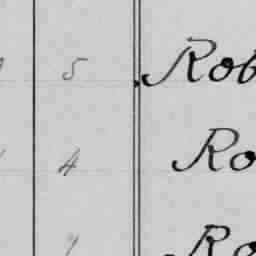 5 Rob
4 Ro
Ro